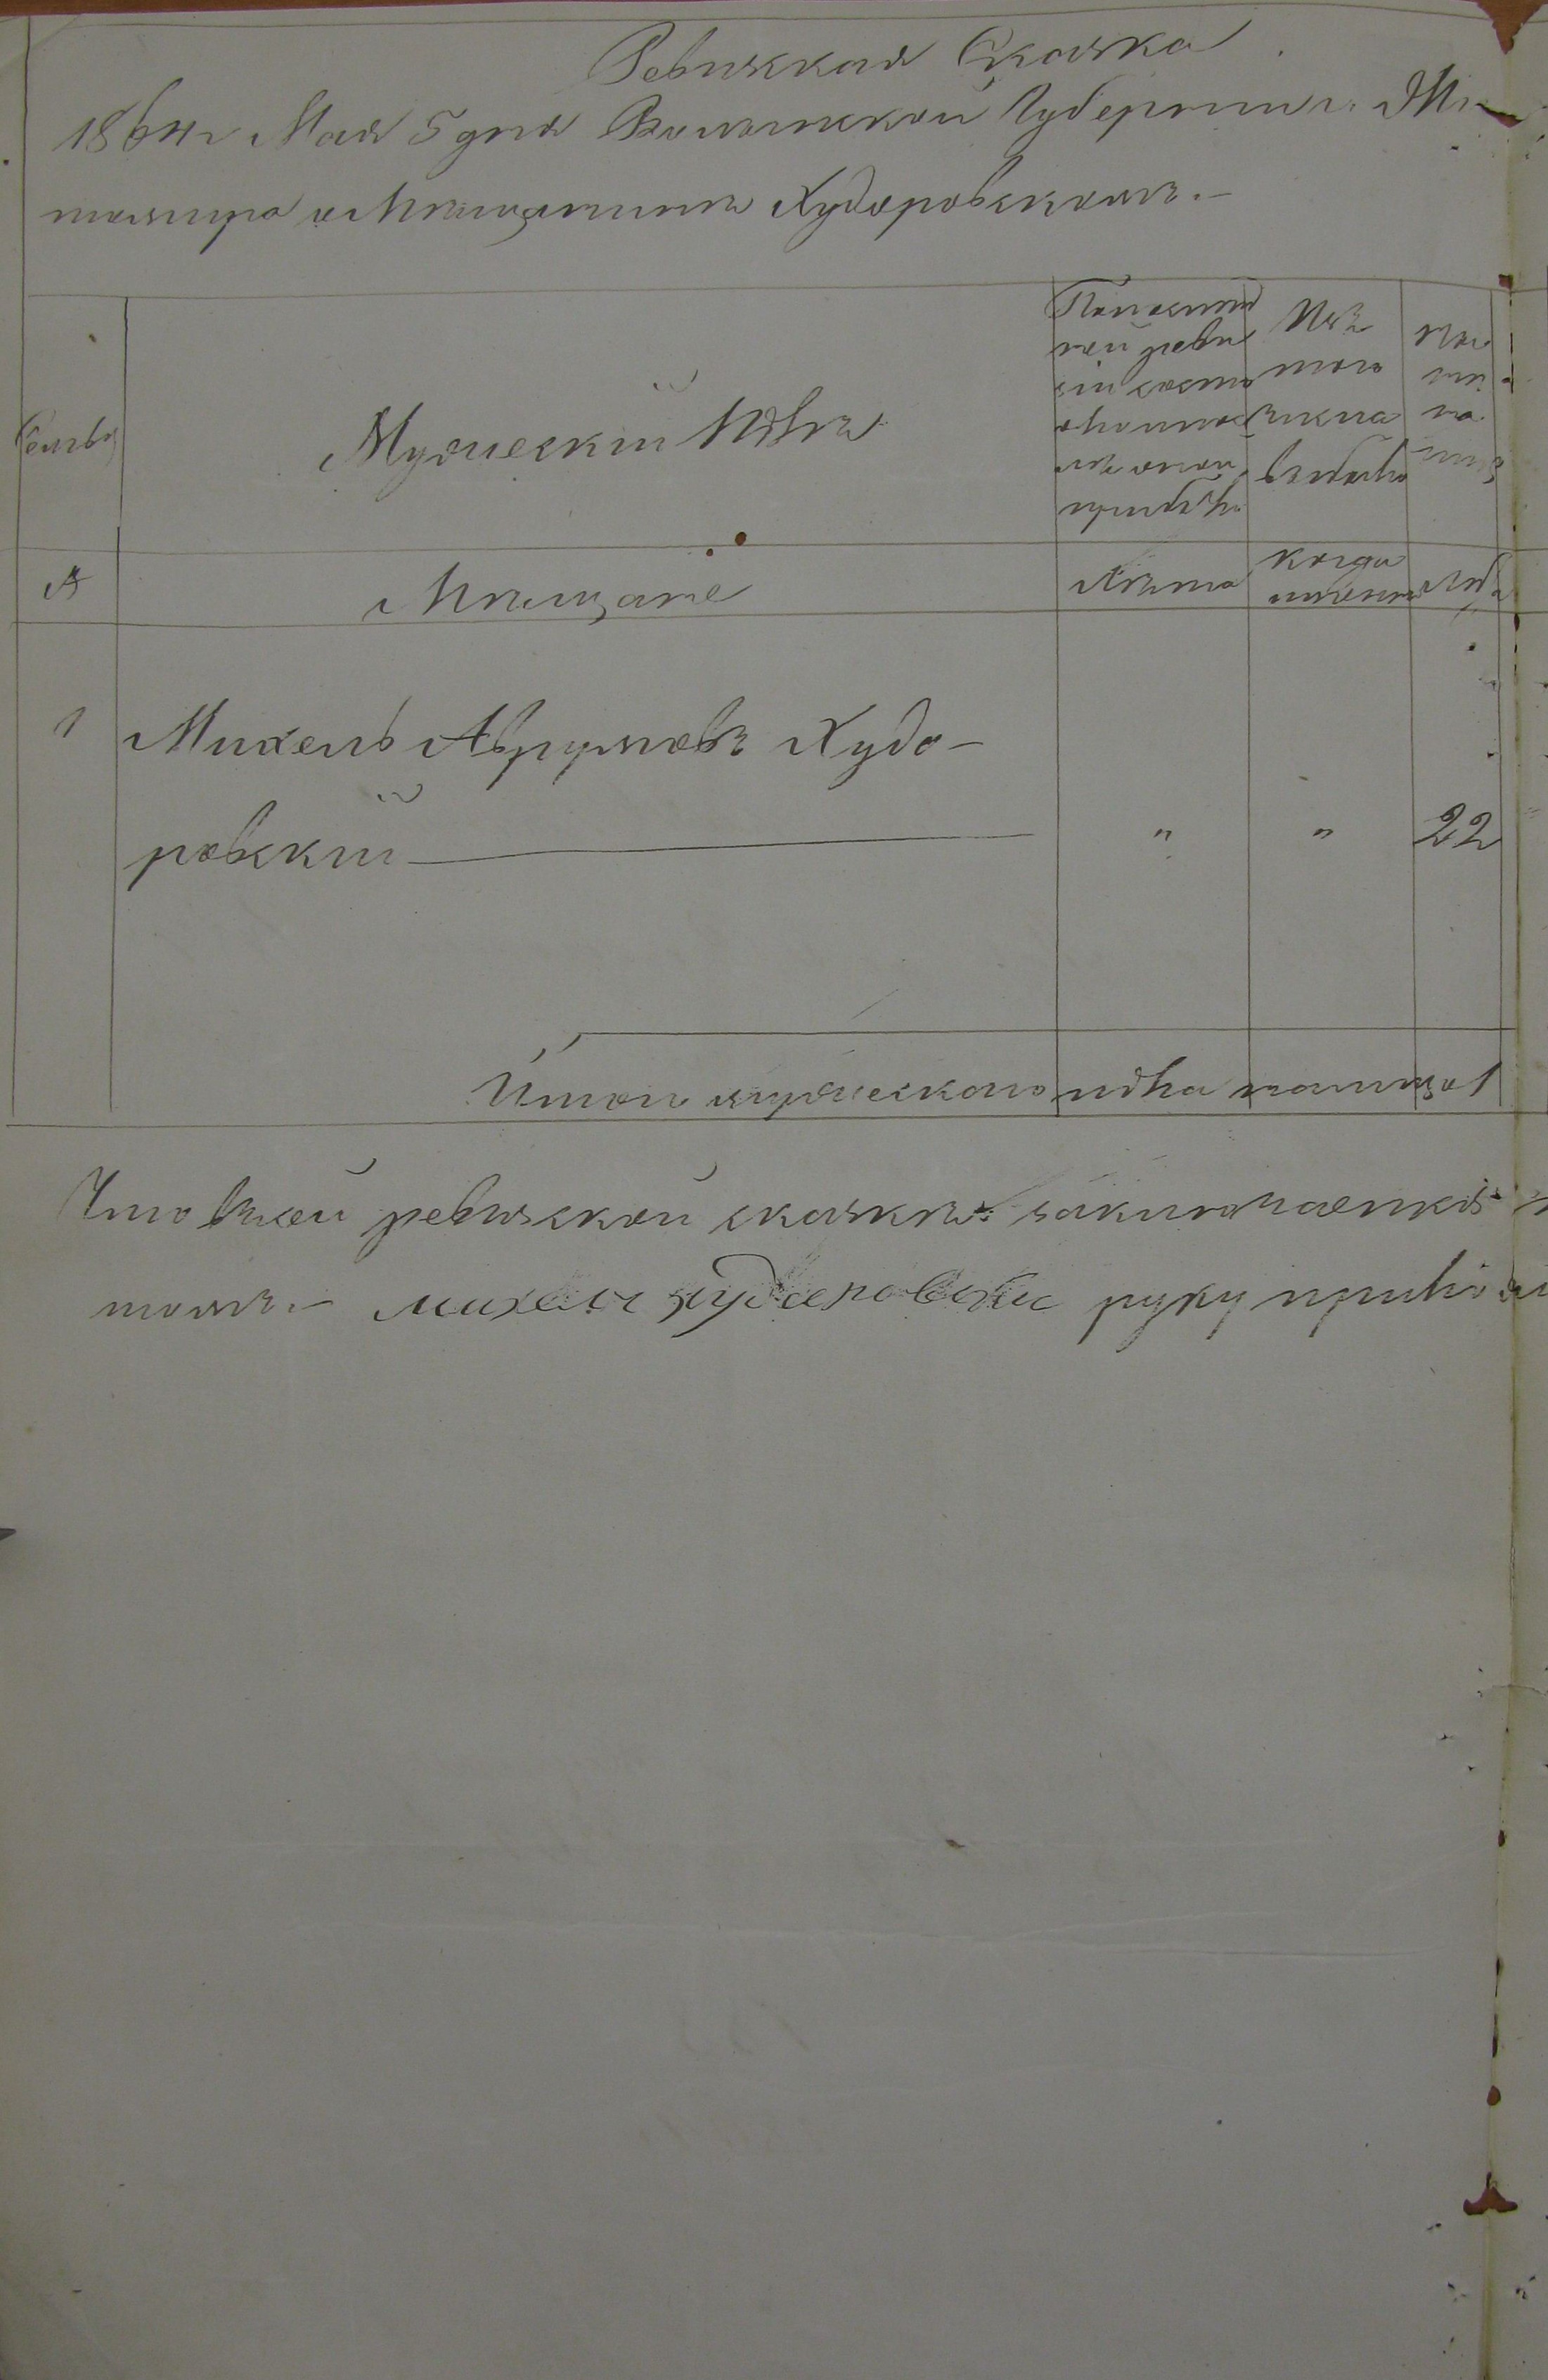 Ревизская Сказка
1864 г Мая 5 дня Волынской Губернии г. Жи-
томира о Мещанине Худоровскомъ.-
Семья
Мужескій Полъ
По последней ревизіи состояло и после оной прибыло
Изъ того числа выбыло
Ныне на лицо
№
Мещане
Лета
Когда именно
Лета
1 Михель Аврумовъ Худо-
ровскій " " 22
Итого мужеска пола на лицо 1
Что в сей ревизской сказке заключается
томъ.- михель худоровски руку прило